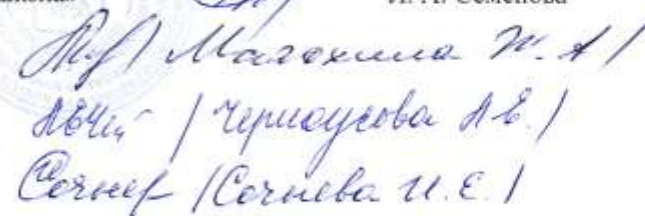 И. А. Семенова
/ Малохина Ж. А /
/ Черноусова А. В. /
/ Сочнева И. Е. /